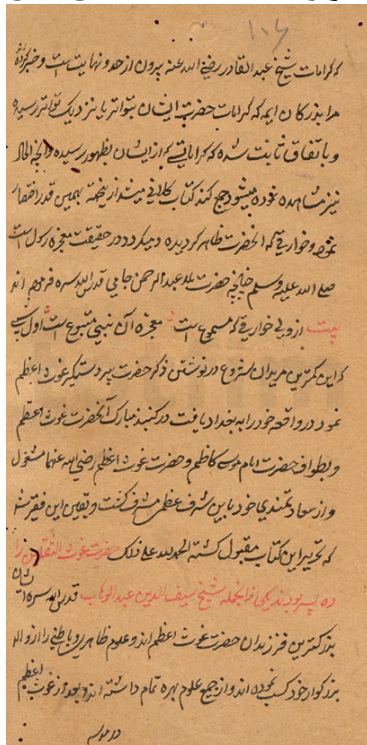 ۱۰۶
که کرامات شیخ عبد القادر رضی الله عنه بیرون از حد و نهایت است و خبر کرده
مرا بزرکان ایمه که کرامات حضرت ایشان بتواتر یا نزدیک بتواتر رسیده
و باتفاق ثابت شده که کراماتیکه از ایشان بظهور رسیده و انچه الحال
نیز مشاهده نموده میشود جمع کند کتاب کلانی میشد ازینجهة بهمین قدر اختصار
نموده و خوارقی که انحضرت ظاهر کردیده و میکردد در حقیقت معجزه رسول است
صلی الله علیه وسلم چنانچه حضرت ملا عبد الرحمن جامی قدس الله سره فرموده اند
بیت از ولی خوارقی که مسموع است معجزه آن نبی متبوع است اول
که این کمترین مریدان شروع در نوشتن ذکر حضرت پیر دستگیر غوث اعظم
نمود در واقعه خود را به بغداد یافت در کنبد مبارک آنحضرت غوث اعظم
و بطواف حضرت امام موسی کاظم و حضرت غوث اعظم رضی الله عنهما مشغول
و از سعادتمندی خود باین شرف عظمی مشرف کشت و یقین این فقیر شد
که تحریر این کتاب مقبول کشته الحمد لله علی ذلک حضرت غوث الثقلین را
ده پسر بودند یکی از انجمله شیخ سیف الدین عبد الوهاب قدس الله سره ایشان
بزرکترین فرزندان حضرت غوث اعظم اند و علوم ظاهری و باطنی را از والد
بزرکوار خود کسب نموده اند و از جمیع علوم بهره تمام داشته اند و بعد از غوث اعظم
در مدرسه